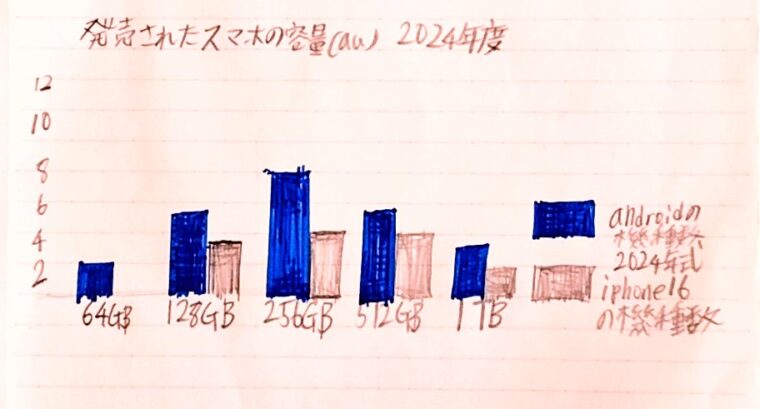 発売されたスマホの容量(au) 2024年度
12
10
8
6
4
2
64GB
128GB
256GB
512GB
1TB
androidの
機種数
2024年式
iphone16
の機種数